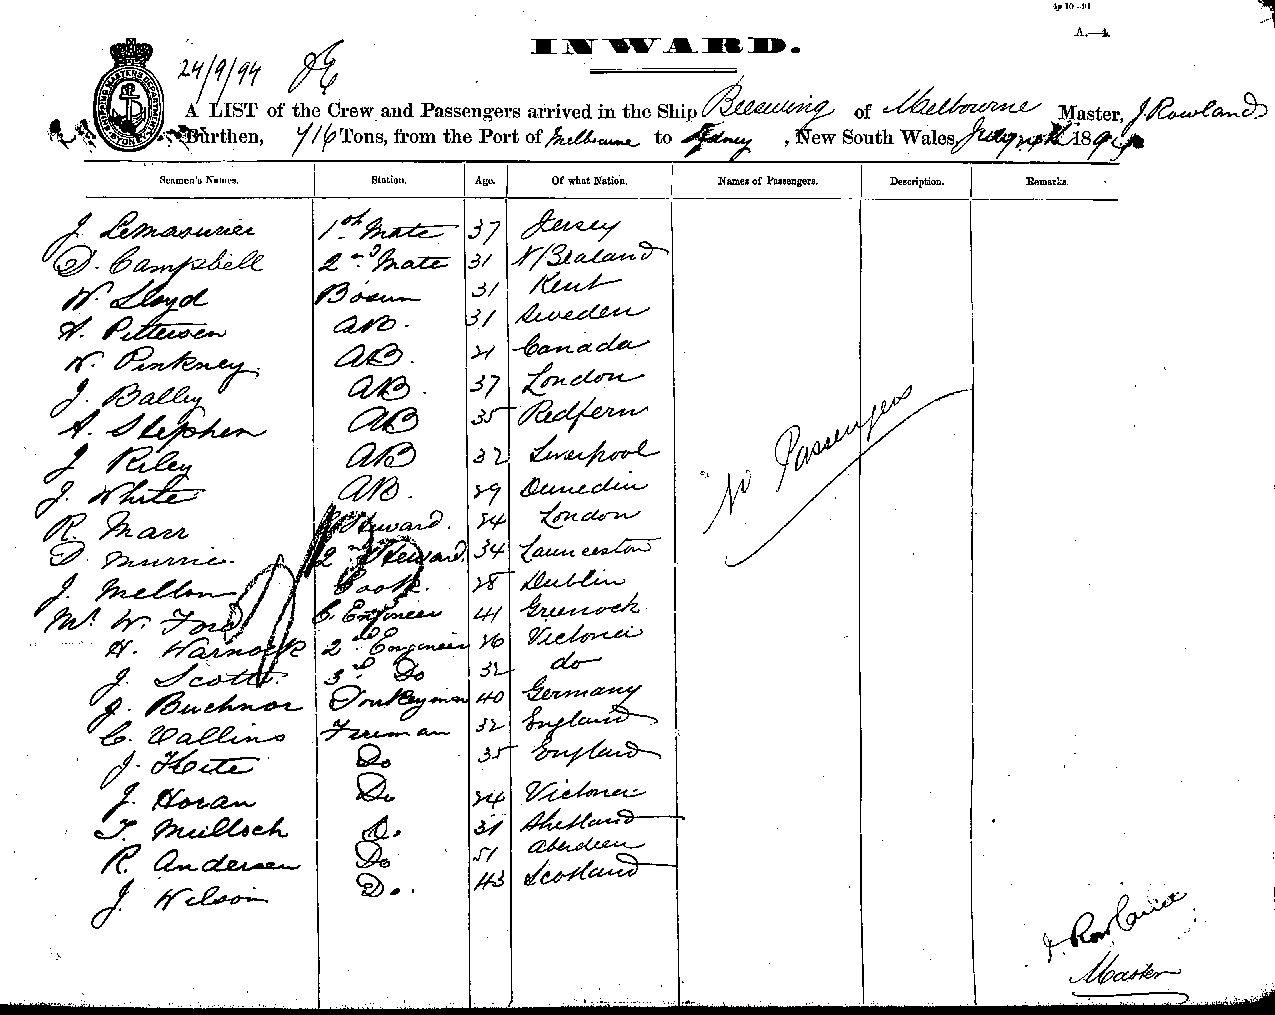 4p 10-91
A.—4.
INWARD.
24/9/94
A LIST of the Crew and Passengers arrived in the Ship of Melbourne Master, J. Rowland
Burthen, 716 Tons, from the Port of Melbourne to Sydney, New South Wales, 189
Seamen's Names. Station. Age. Of what Nation. Names of Passengers. Description. Remarks.
J. LeMasurier 1st Mate 37 Jersey
D. Campbell 2nd Mate 31 N/Zealand
W. Lloyd Bosun 31 Kent
H. Pettersen AB. 31 Sweden
W. Pinkney AB. 21 Canada
J. Balley AB. 37 London
A. Stephen AB 35 Redfern
J. Riley AB 32 Liverpool
J. White AB. 29 Dunedin
R. Marr Steward. 24 London
D. Murrie. 2nd Steward. 34 Launceston
J. Mellon Cook. 28 Dublin
Mr. W. Ford C. Engineer 41 Greenock
H. Warnock 2nd Engineer 26 Victoria
J. Scott. 3rd Do 32 do
J. Buchnor Donkeyman 40 Germany
C. Vallins Fireman 32 England
J. Kete Do 35 England
J. Horan Do 24 Victoria
T. Mulloch Do. 31 Shetland
R. Andersen Do 51 Aberdeen
J. Wilson Do. 43 Scotland
No Passengers
J. Rowland
Master